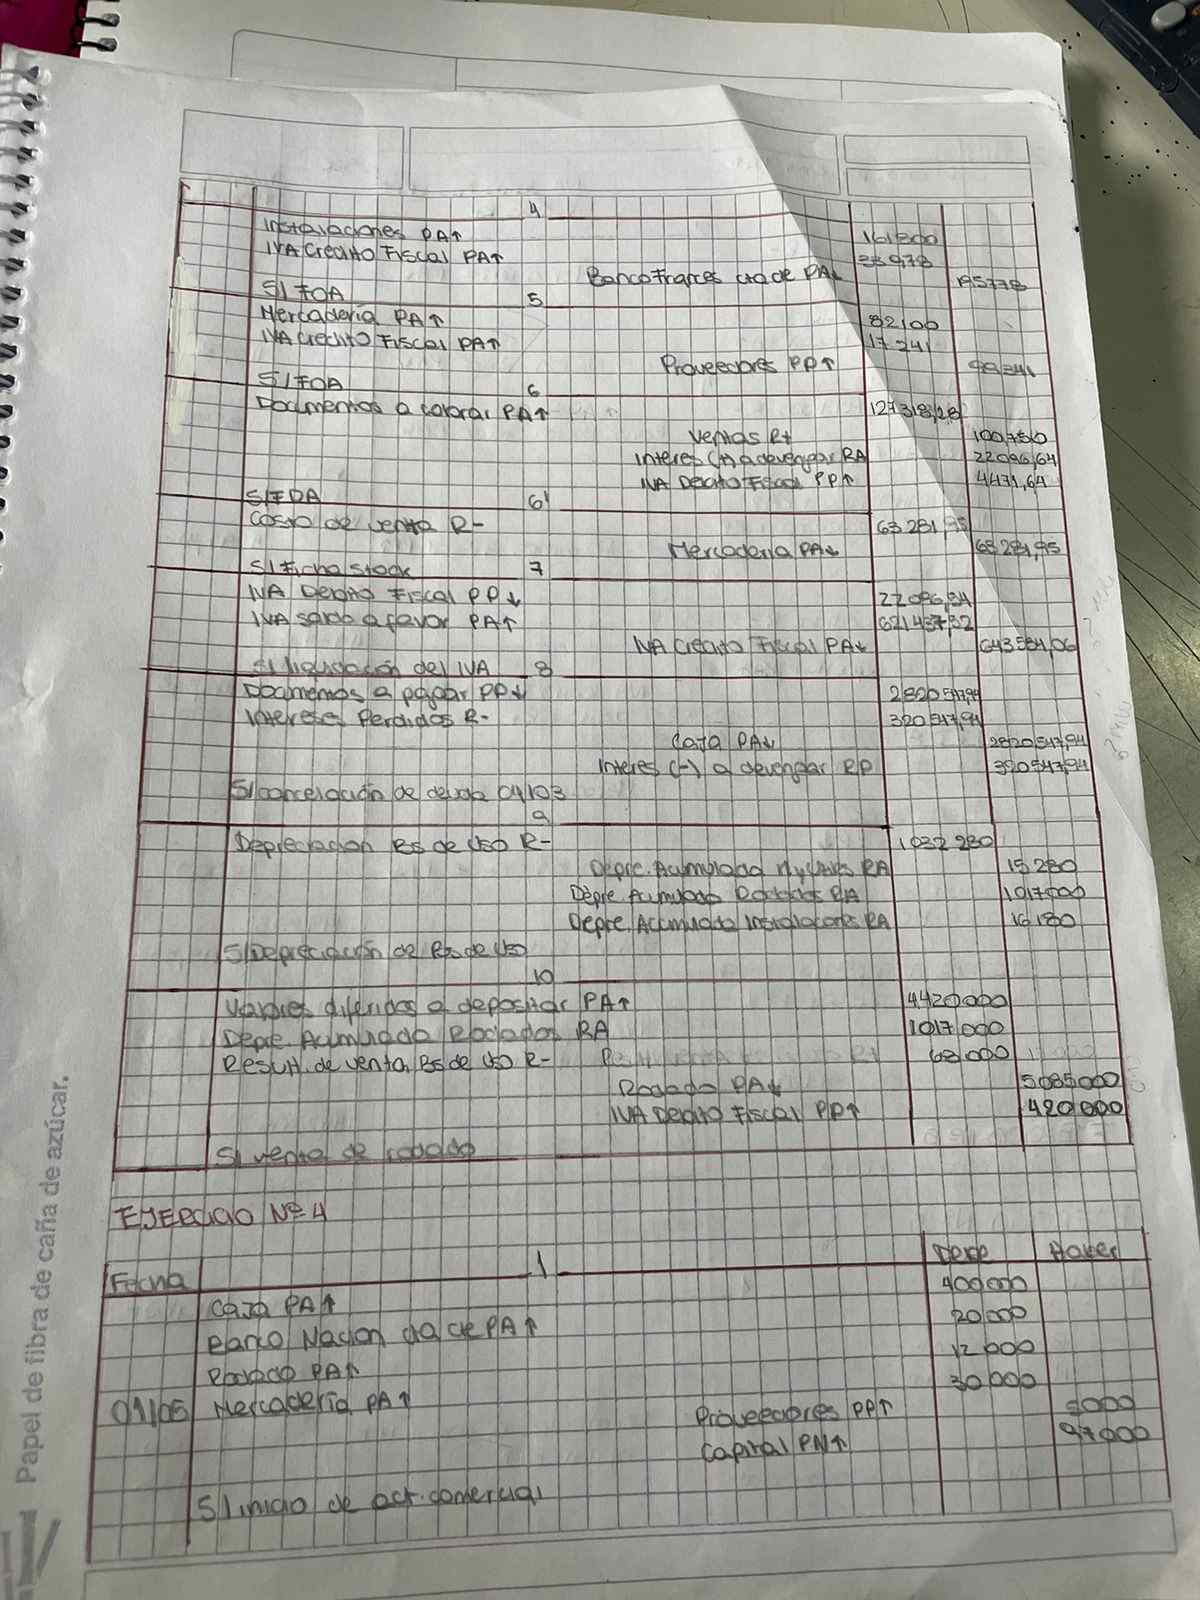 4
Instalaciones PA↑ 161800
IVA Credito Fiscal PA↑ 33978
Banco Frances cta cte PA↓ 195778
S/ FOA
5
Mercaderia PA↑ 82100
IVA Credito Fiscal PA↑ 17241
Proveedores PP↑ 99341
S/FOA
6
Documentos a cobrar PA↑ 127318,28
Ventas R+ 100,750
Interes (+) a devengar RA 22096,64
IVA Debito Fiscal PP↑ 4471,64
S/FDA
6'
Costo de venta R- 63281,95
Mercaderia PA↓ 63281,95
S/ Ficha stock
7
IVA Debito Fiscal PP↓
IVA saldo a favor PA↑ 621437,32
IVA Credito Fiscal PA↓ 643584,06
S/ liquidación del IVA
8
Documentos a pagar PP↓ 2820547,94
Intereses Perdidos R- 320547,94
Caja PA↓ 2820547,94
Interes (-) a devengar RP 320547,94
S/cancelación de deuda 04/03
9
Depreciacion Bs de Uso R- 1032280
Depre. Acumulada RA 15280
Depre Acumulada Rodados RA 1017000
Depre. Acumulada Instalaciones RA 16180
S/Depreciación de Bs de Uso
10
Valores diferidos a depositar PA↑ 4420000
Depre Acumulado Rodados RA 1017000
Result. de venta Bs de Uso R- 68000
Rodado PA↓ 5085000
IVA Debito Fiscal PP↑ 420000
S/ venta de rodado
EJERCICIO Nº 4
Debe Haber
Fecha 1
Caja PA↑ 400000
Banco Nacion cta cte PA↑ 20000
Rodado PA↑ 12000
01/05 Mercaderia PA↑ 30000
Proveedores PP↑ 5000
Capital PN↑ 97000
S/ inicio de act. comercial
Papel de fibra de caña de azúcar.